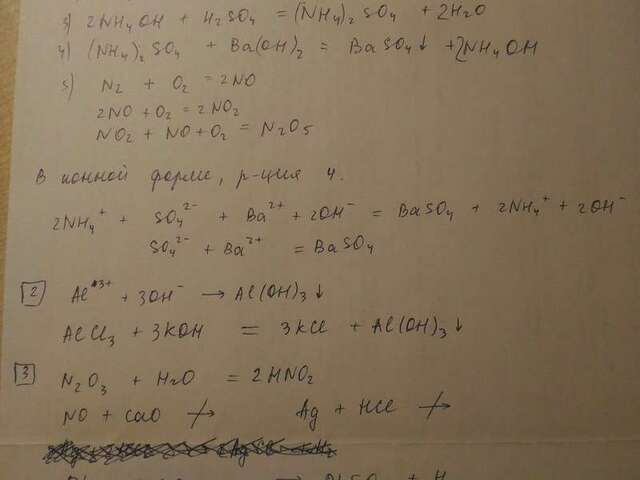 3) 2NH₄OH + H₂SO₄ = (NH₄)₂SO₄ + 2H₂O
4) (NH₄)₂SO₄ + Ba(OH)₂ = BaSO₄↓ + 2NH₄OH
5) N₂ + O₂ = 2NO
2NO + O₂ = 2NO₂
NO₂ + NO + O₂ = N₂O₅
В ионной форме, р-ция 4.
2NH₄⁺ + SO₄²⁻ + Ba²⁺ + 2OH⁻ = BaSO₄ + 2NH₄⁺ + 2OH⁻
SO₄²⁻ + Ba²⁺ = BaSO₄
2 Al³⁺ + 3OH⁻ → Al(OH)₃↓
AlCl₃ + 3KOH = 3KCl + Al(OH)₃↓
3 N₂O₃ + H₂O = 2HNO₂
NO + CaO ↛ Ag + HCl ↛